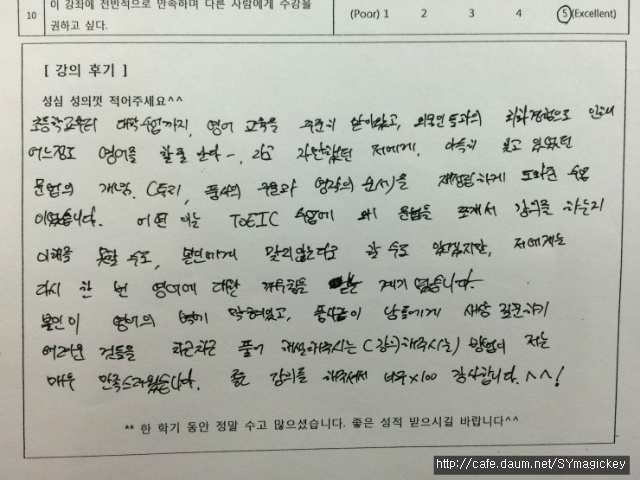 이 강좌에 전반적으로 만족하며 다른 사람에게 수강을
10 권하고 싶다. (Poor) 1 2 3 4 5 (Excellent)
[ 강의 후기 ]
성심 성의껏 적어주세요^^
초등학교부터 대학수업까지, 영어 교육을 꾸준히 받아왔고, 외국인들과의 회화경험으로 인해
어느정도 영어를 할줄 안다~, 라고 자만했던 저에게, 아득히 잊고 있었던
문법의 개념, (특히, 품사의 구분과 영작의 순서)을 재정립하게 도와준 수업
이었습니다. 어떤 이는 TOEIC 수업에 왜 문법을 쪼개서 강의를 하는지
이해를 못할 수도, 본인에게 맞지않는다고 할 수도 있겠지만, 저에게는
다시 한 번 영어에 대한 깨우침을 계기였습니다.
본인이 영어의 벽에 막혀있고, 남들에게 새삼 질문하기
어려운 것들을 차근차근 풀어 해설해주시는 (강의해주시는) 방법이 저는
매우 만족스러웠습니다. 좋은 강의를 해주셔서 너무×100 감사합니다.^^!
** 한 학기 동안 정말 수고 많으셨습니다. 좋은 성적 받으시길 바랍니다^^
http://cafe.daum.net/SYmagickey